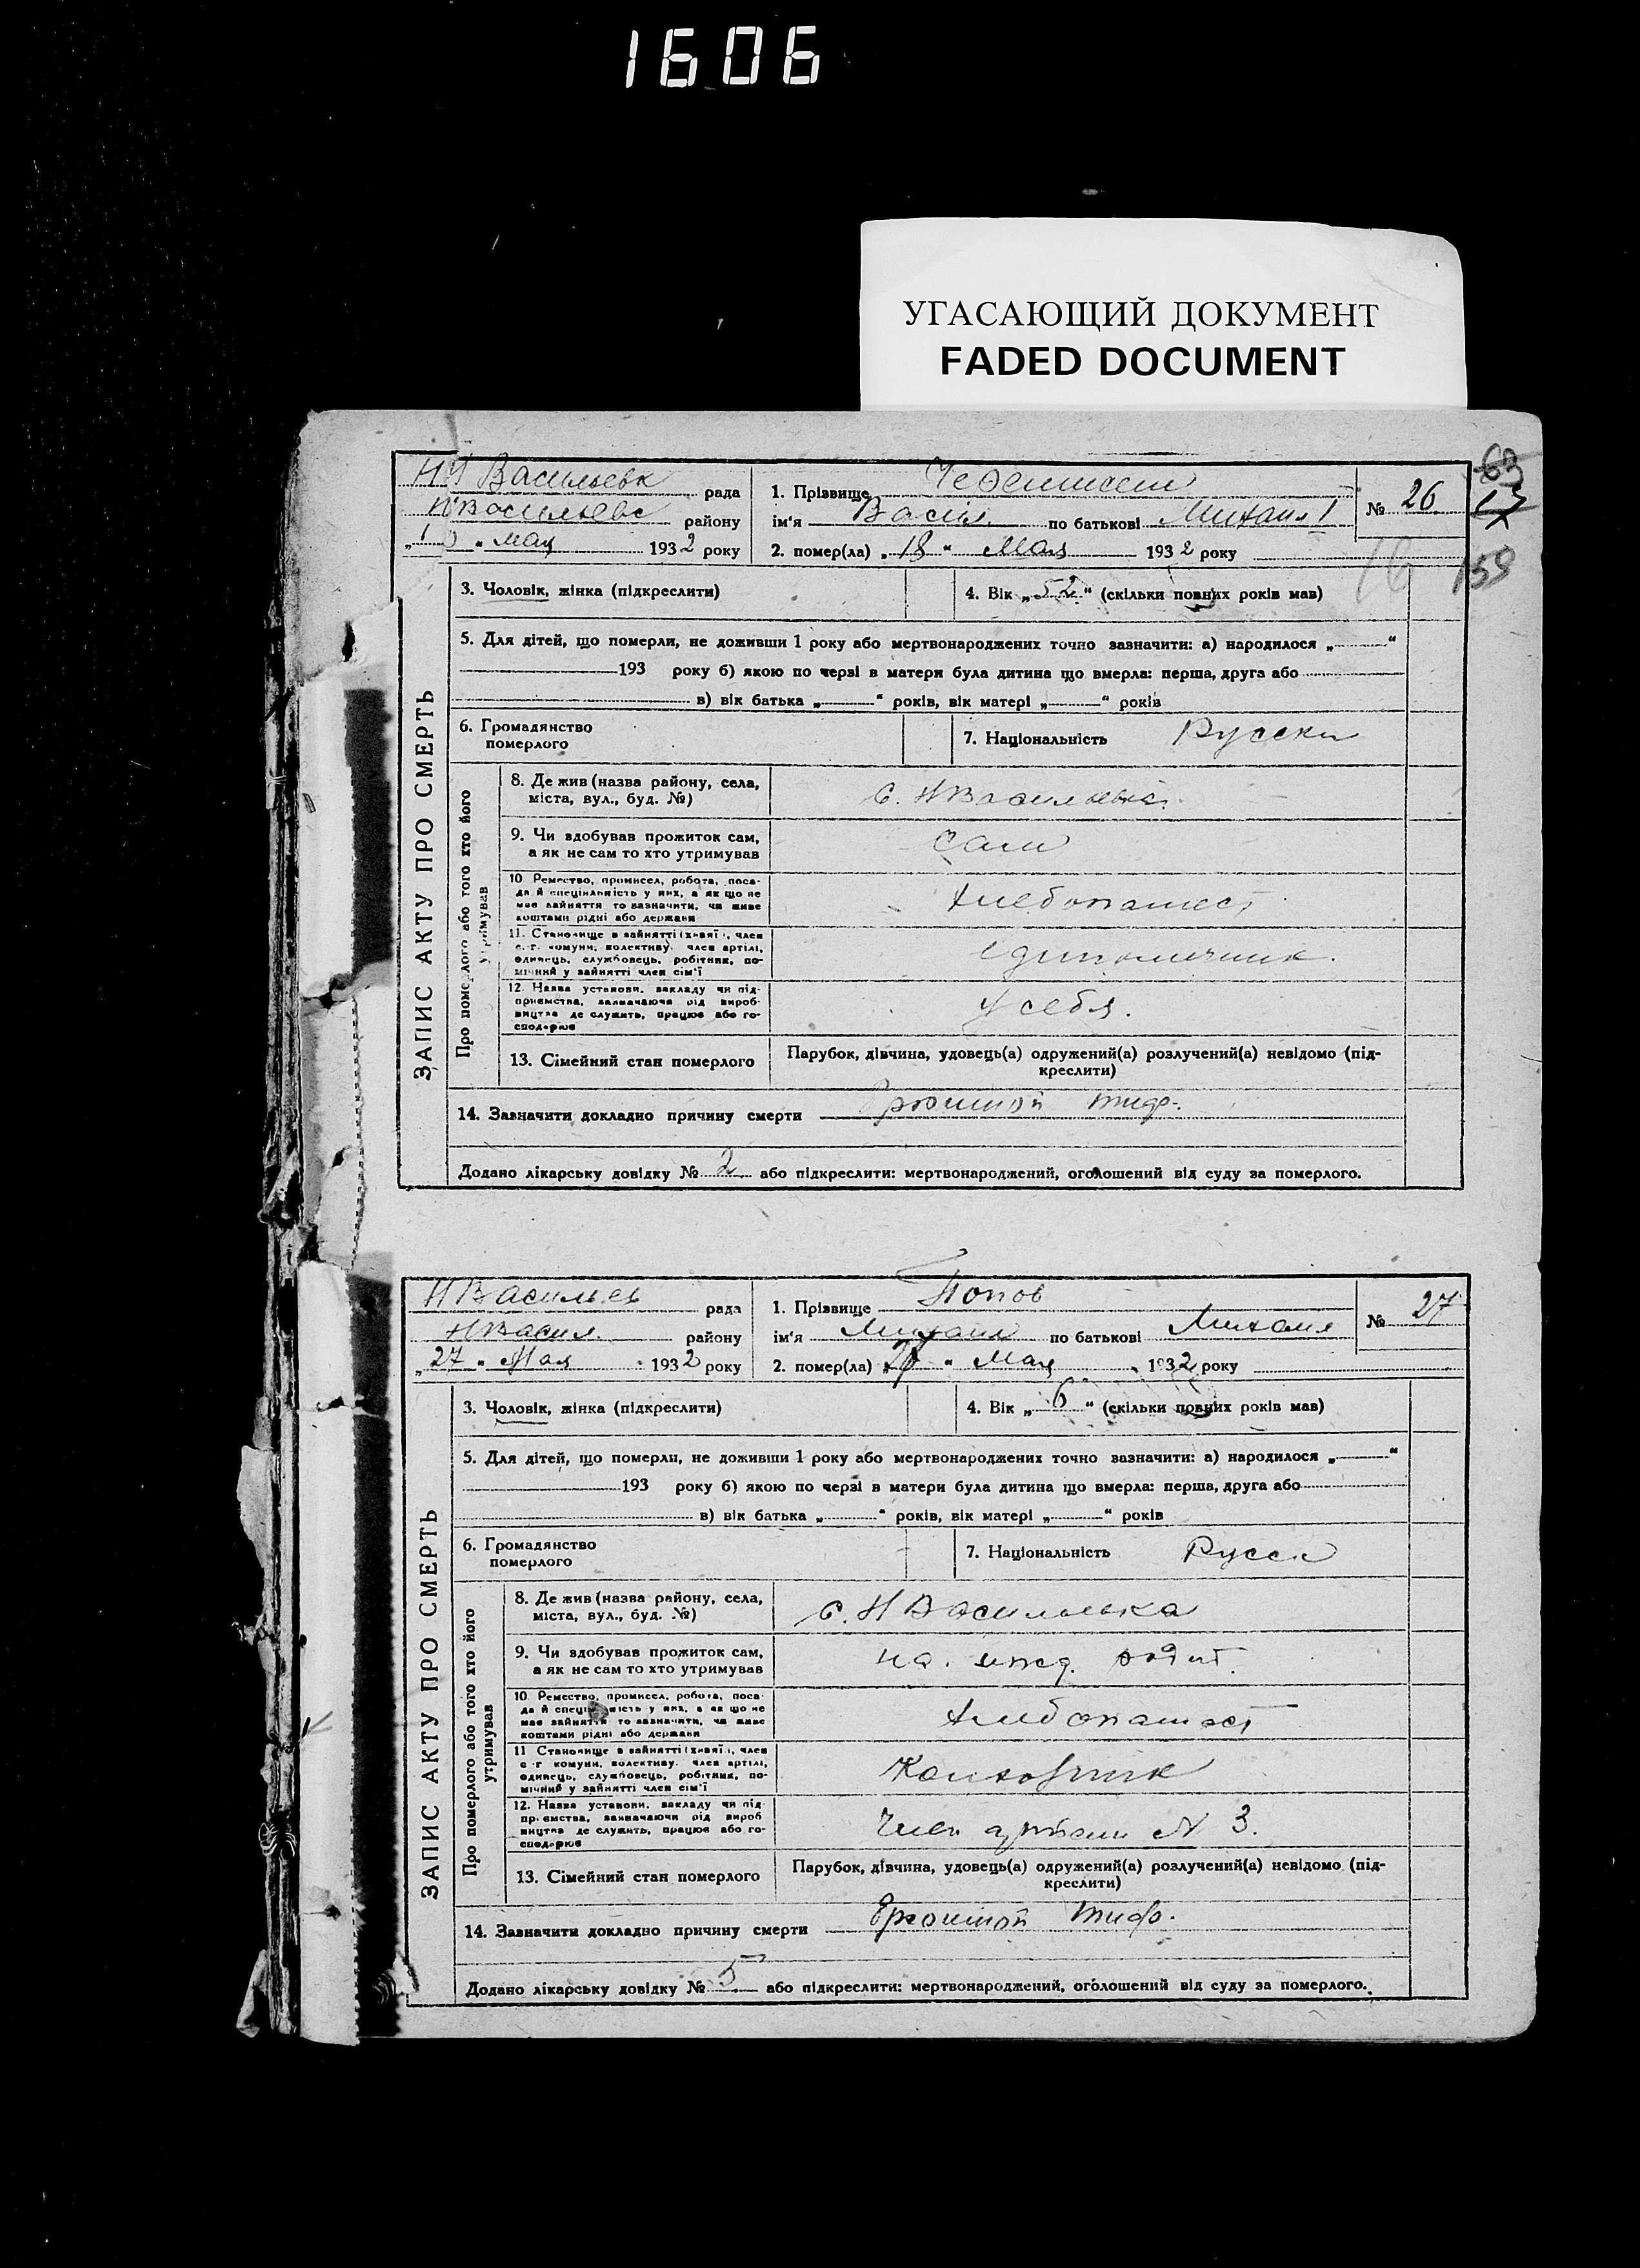 1606
УГАСАЮЩИЙ ДОКУМЕНТ
FADED DOCUMENT
63
159
Васильевк рада
Н Васильевс району
мая 1932 року
1. Прізвище
ім'я Васил по батькові Михаил
2. помер(ла) „18“ Мая 1932 року
№ 26
ЗАПИС АКТУ ПРО СМЕРТЬ
3. Чоловік, жінка (підкреслити)
4. Вік „52“ (скільки повних років мав)
5. Для дітей, що померли, не доживши 1 року або мертвонароджених точно зазначити: а) народилося „ “
193 року б) якою по черзі в матери була дитина що вмерла: перша, друга або
в) вік батька „ “ років, вік матері „ “ років
6. Громадянство
померлого
7. Національність Русски
Про померлого або того хто його
утримував
8. Де жив (назва району, села,
міста, вул., буд. №)
с. Н Васильевка
9. Чи здобував прожиток сам,
а як не сам то хто утримував
Сам
10. Ремество, промисел, робота, поса-
да й спеціяльність у них, а як що не
має зайняття то зазначити, чи живе
коштами рідні або держави
Хлебопашест
11. Становище в зайнятті (хазяї), член
с.-г. комуни, колективу, член артілі,
одинець, службовець, робітник, по-
мічний у зайнятті член сім'ї
единоличник.
12. Назва установи, закладу чи під-
приємства, зазначаючи рід вироб-
ництва де служить, працює або го-
сподарює
У себя.
13. Сімейний стан померлого
Парубок, дівчина, удовець(а) одружений(а) розлучений(а) невідомо (під-
креслити)
14. Зазначити докладно причину смерти Брюшной тиф.
Додано лікарську довідку № 2 або підкреслити: мертвонароджений, оголошений від суду за померлого.
Н Васильев рада
Н Васил. району
„27“ Мая 1932 року
1. Прізвище Попов
ім'я Михаил по батькові Михаил
2. помер(ла) „27“ Мая 1932 року
№ 27
ЗАПИС АКТУ ПРО СМЕРТЬ
3. Чоловік, жінка (підкреслити)
4. Вік „6“ (скільки повних років мав)
5. Для дітей, що померли, не доживши 1 року або мертвонароджених точно зазначити: а) народилося „ “
193 року б) якою по черзі в матери була дитина що вмерла: перша, друга або
в) вік батька „ “ років, вік матері „ “ років
6. Громадянство
померлого
7. Національність Русск
Про померлого або того хто його
утримував
8. Де жив (назва району, села,
міста, вул., буд. №)
с. Н Васильевка
9. Чи здобував прожиток сам,
а як не сам то хто утримував
на ижд.
10. Ремество, промисел, робота, поса-
да й спеціяльність у них, а як що не
має зайняття то зазначити, чи живе
коштами рідні або держави
Хлебопашест
11. Становище в зайнятті (хазяї), член
с.-г. комуни, колективу, член артілі,
одинець, службовець, робітник, по-
мічний у зайнятті член сім'ї
Колхозник
12. Назва установи, закладу чи під-
приємства, зазначаючи рід вироб-
ництва де служить, працює або го-
сподарює
Член артели № 3.
13. Сімейний стан померлого
Парубок, дівчина, удовець(а) одружений(а) розлучений(а) невідомо (під-
креслити)
14. Зазначити докладно причину смерти Брюшной тиф.
Додано лікарську довідку № 5 або підкреслити: мертвонароджений, оголошений від суду за померлого.